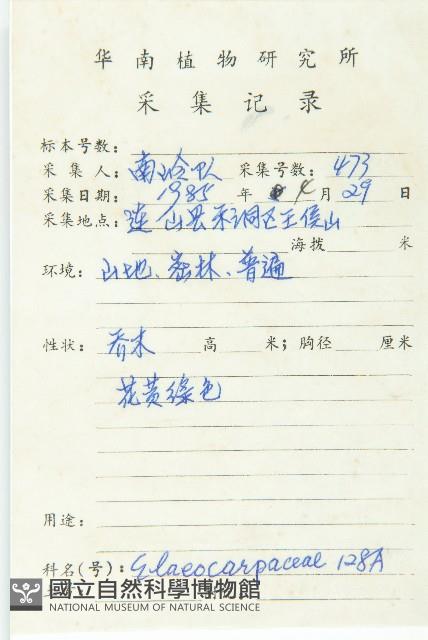 华南植物研究所
采集记录
标本号数：
采集人：南岭队 采集号数：473
采集日期：1985 年 4 月 29 日
采集地点：连山县禾洞区王侯山
海拨 米
环境：山地、密林、普遍
性状：乔木 高 米；胸径 厘米
花黄绿色
用途：
科名(号)：Elaeocarpaceae 128A
國立自然科學博物館
NATIONAL MUSEUM OF NATURAL SCIENCE